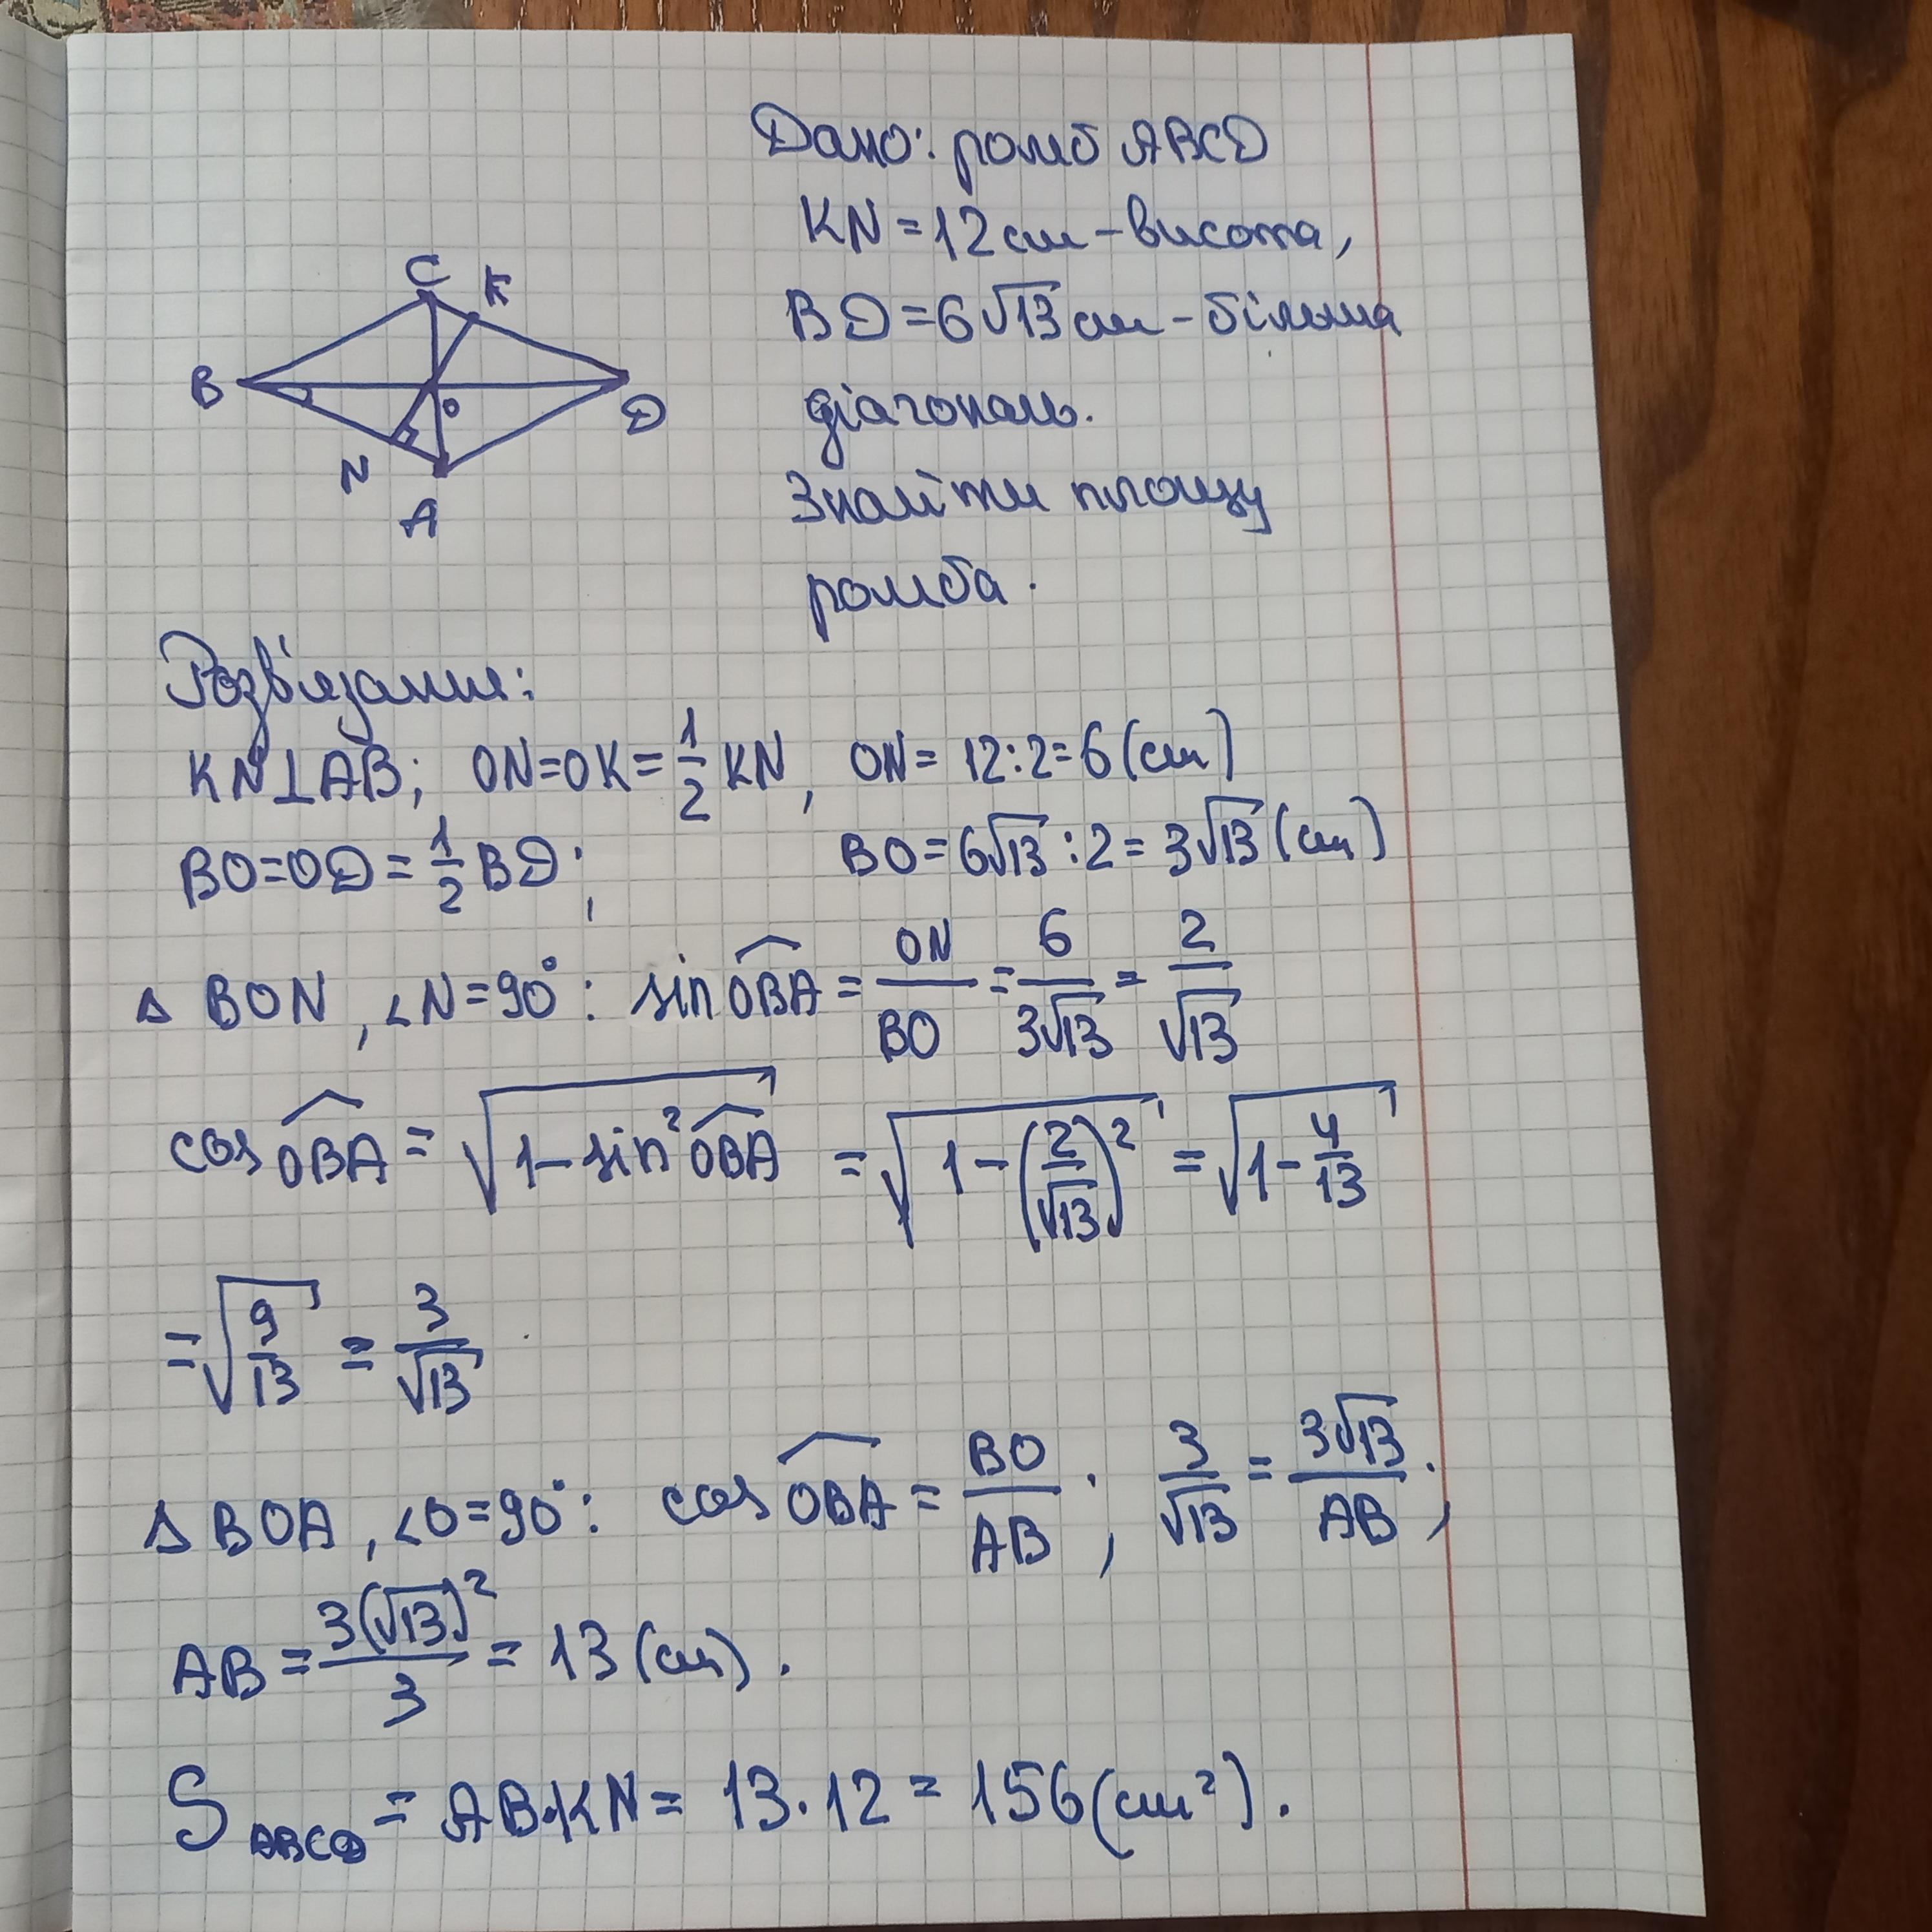 Дано: ромб ABCD
KN = 12 см – висота,
BD = 6√13 см – більша
діагональ.
Знайти площу
ромба.
C K
B O D
N
A
Розв'язання:
KN⊥AB; ON=OK=1/2 KN, ON= 12:2=6 (см)
BO=OD=1/2 BD; BO=6√13:2=3√13 (см)
Δ BON, ∠N=90°: sin OBA = ON/BO = 6/(3√13) = 2/√13
cos OBA = √(1-sin² OBA) = √(1-(2/√13)²) = √(1-4/13)
=√(9/13) = 3/√13
Δ BOA, ∠O=90°: cos OBA = BO/AB; 3/√13 = 3√13/AB;
AB = 3(√13)²/3 = 13 (см).
S ABCD = AB·KN = 13·12 = 156 (см²).